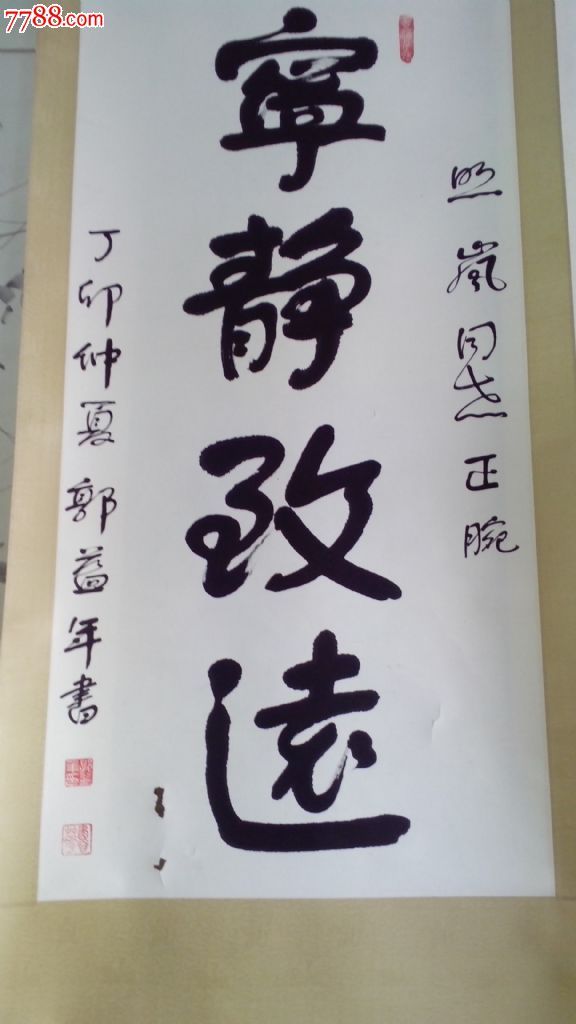 7788.com
寧靜致遠
照嵐同志正腕
丁卯仲夏郭益年書